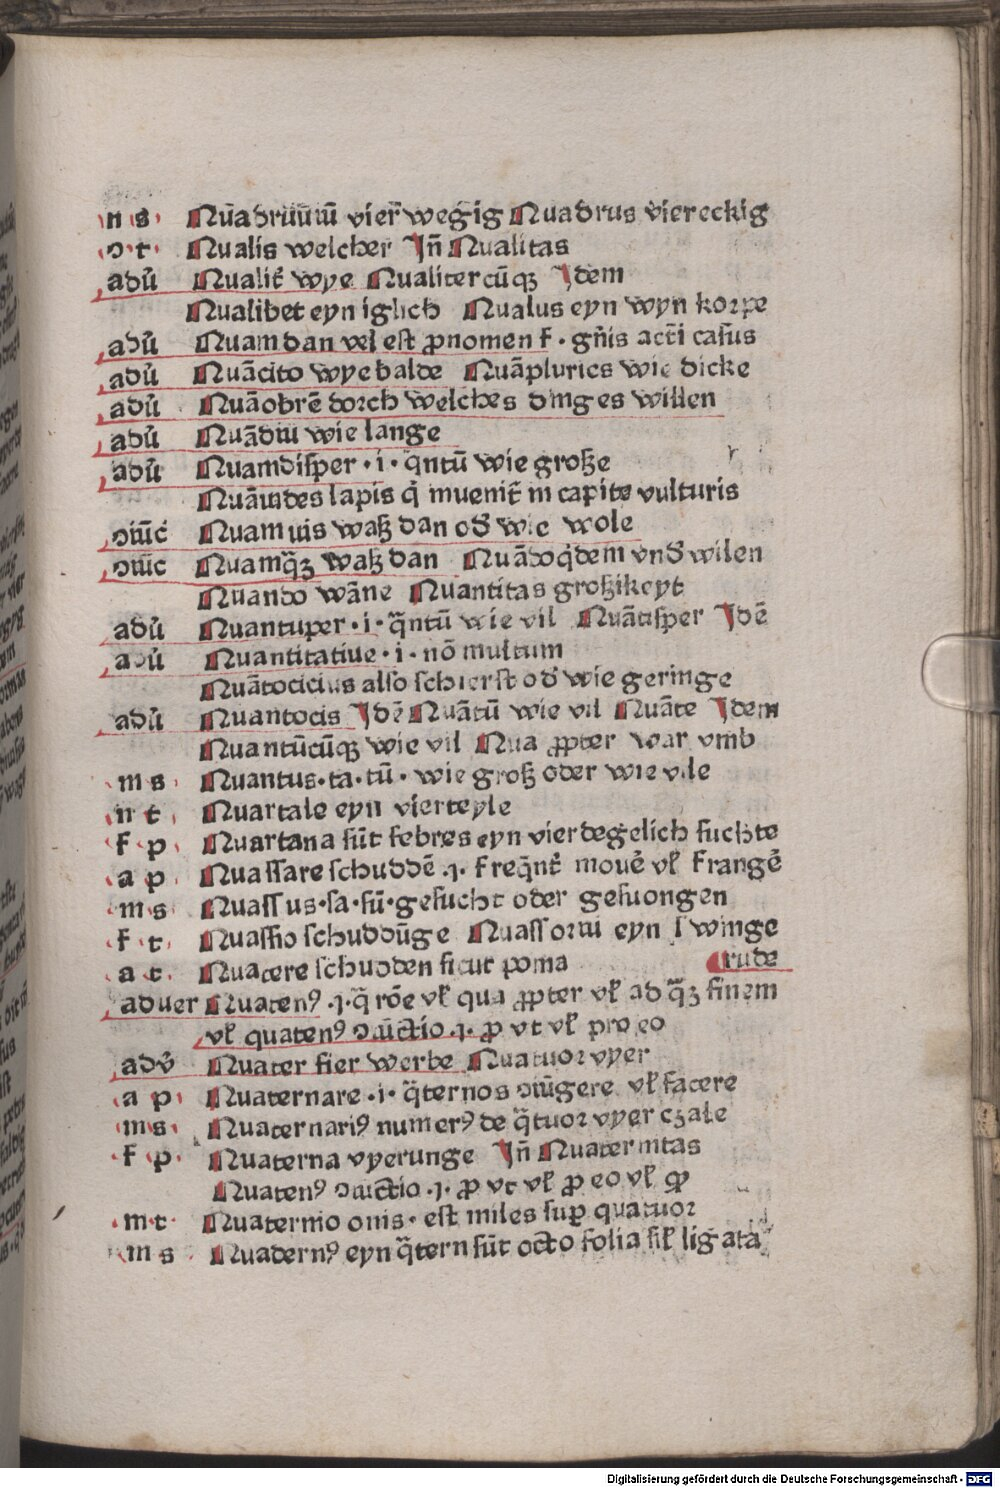 n s Quadruuiū vier wegig Quadrus viereckig
o t Qualis welcher Jn̄ Qualitas
adū Qualit̄ wye Qualitercūqꝫ Jdem
Qualibet eyn iglich Qualus eyn wyn korpe
adū Quam dan vel est ꝓnomen f · gn̄is acti casus
adū Quācito wye balde Quāpluries wie dicke
adū Quāobrē dorch welches dinges willen
adū Quādiu wie lange
adū Quamdisper · i · qntū wie große
Quāuides lapis q̇ inuenit̄ in capite vulturis
ↄiūc Quam uis waß dan od̄ wie wole
ↄiūc Quamq̄ꝫ waß dan Quādoq̇dem vnd̄ wilen
Quando wāne Quantitas großikeyt
adū Quantuper · i · q̄ntū wie vil Quātisper Jdē
adū Quantitatiue · i · nō multum
Quātocicius also schierst od̄ wie geringe
adū Quantocis Jdē Quātū wie vil Quāte Jdem
Quantūcūqꝫ wie vil Qua ꝓpter war vmb
m s Quantus · ta · tū · wie groß oder wie vile
n t Quartale eyn vierteyle
f p Quartana sūt febres eyn vierdegelich suchte
a p Quassare schuddē .ꝛ. freq̄nt̄ mouē vl̄ frangē
m s Quassus · sa · sū · gesucht oder gesuongen
f t Quassio schuddūge Quassoriū eyn swinge
a t Quatere schudden sicut poma rude
aduer Quatenꝰ .ꝛ. q̄ rōe vl̄ qua ꝓpter vl̄ ad q̄ꝫ finem
vl̄ quatenꝰ ↄiūctio .ꝛ. ꝓ vt vl̄ pro eo
adū Quater fier werbe Quatuor vyer
a p Quaternare · i · q̄ternos ↄiūgere vl̄ facere
m s Quaternariꝰ numerꝰ de q̄tuor vyer czale
f p Quaterna vyerunge Jn̄ Quaternitas
Quatenꝰ ↄiūctio .ꝛ. ꝓ vt vl̄ ꝓ eo vl̄ ꝙ
m t Quaternio onis · est miles sup̄ quatuor
m s Quadernꝰ eyn q̄tern sūt octo folia sil̄ ligata
Digitalisierung gefördert durch die Deutsche Forschungsgemeinschaft - DFG